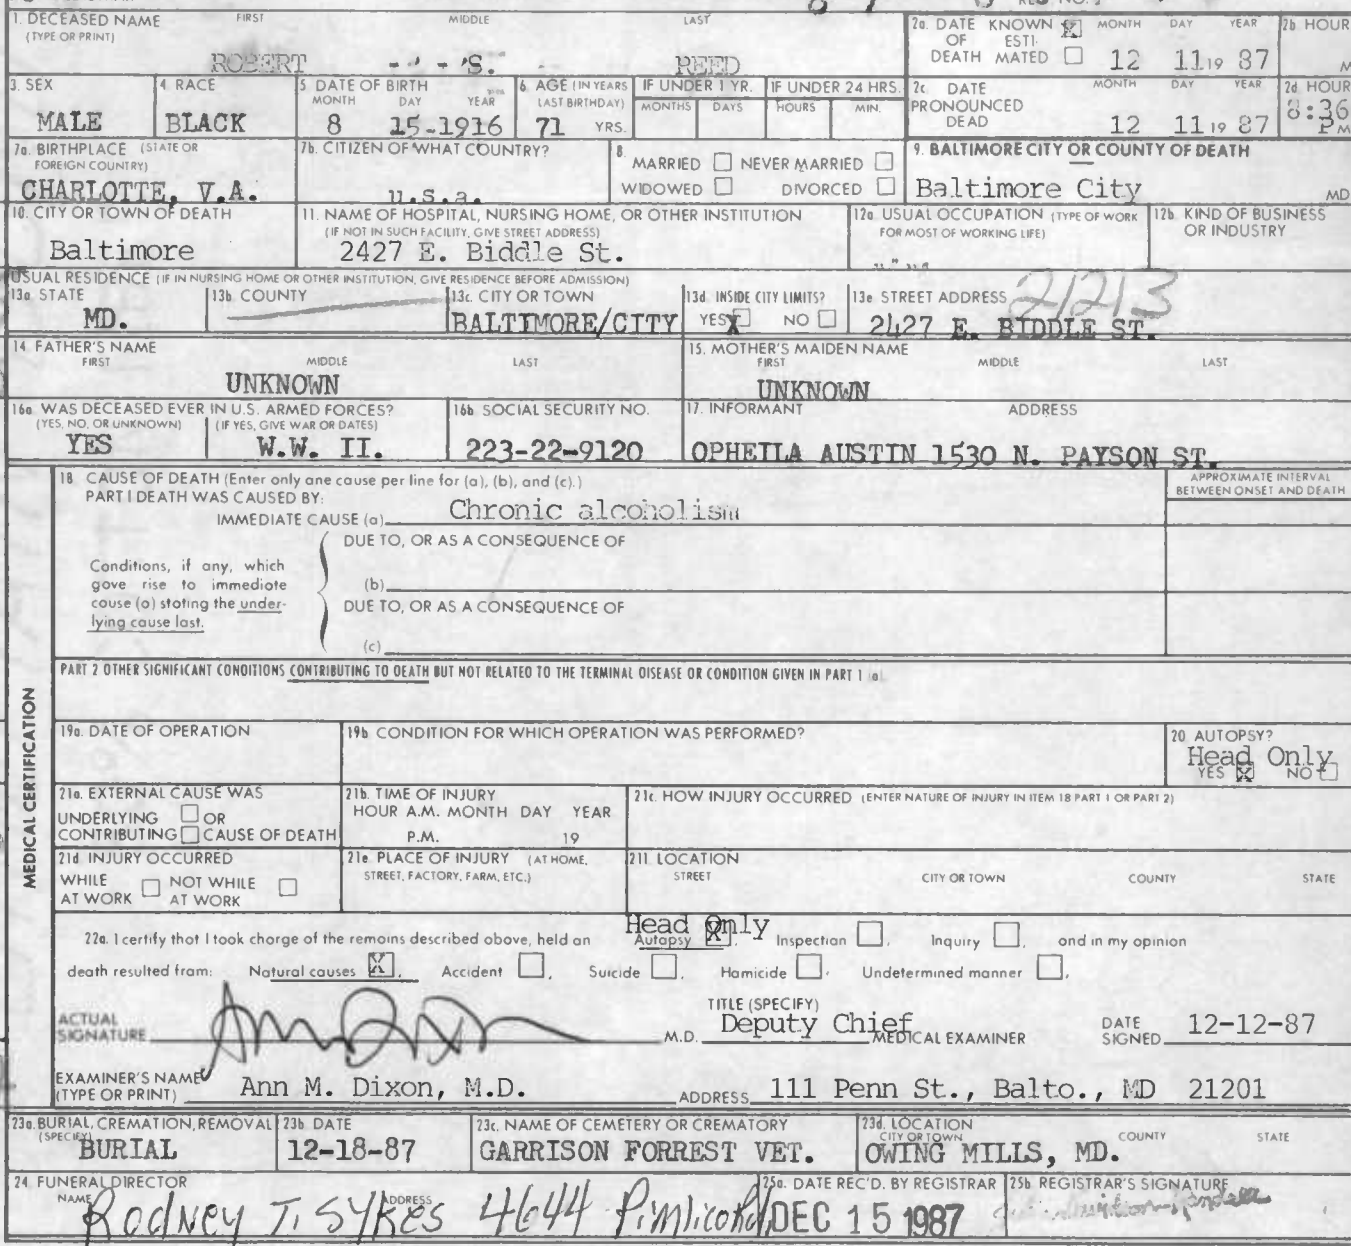 1. DECEASED NAME FIRST MIDDLE LAST
(TYPE OR PRINT)
ROBERT S. REED
2a. DATE KNOWN X MONTH DAY YEAR 2b HOUR
OF ESTI-
DEATH MATED 12 11 19 87 M
3. SEX 4 RACE 5 DATE OF BIRTH 6. AGE (IN YEARS IF UNDER 1 YR. IF UNDER 24 HRS. 2c. DATE MONTH DAY YEAR 2d HOUR
MONTH DAY YEAR LAST BIRTHDAY) MONTHS DAYS HOURS MIN. PRONOUNCED
DEAD
MALE BLACK 8 15-1916 71 YRS. 12 11 19 87 8:36 P M
7a. BIRTHPLACE (STATE OR
FOREIGN COUNTRY)
CHARLOTTE, V.A.
7b. CITIZEN OF WHAT COUNTRY?
u.s.a.
8. MARRIED NEVER MARRIED
WIDOWED DIVORCED
9. BALTIMORE CITY OR COUNTY OF DEATH
Baltimore City MD
10. CITY OR TOWN OF DEATH
Baltimore
11. NAME OF HOSPITAL, NURSING HOME, OR OTHER INSTITUTION
(IF NOT IN SUCH FACILITY, GIVE STREET ADDRESS)
2427 E. Biddle St.
12a. USUAL OCCUPATION (TYPE OF WORK
FOR MOST OF WORKING LIFE)
12b. KIND OF BUSINESS
OR INDUSTRY
USUAL RESIDENCE (IF IN NURSING HOME OR OTHER INSTITUTION, GIVE RESIDENCE BEFORE ADMISSION)
13a STATE 13b COUNTY 13c. CITY OR TOWN 13d. INSIDE CITY LIMITS? 13e STREET ADDRESS 21213
MD. BALTIMORE/CITY YES X NO 2427 E. BIDDLE ST.
14. FATHER'S NAME
FIRST MIDDLE LAST
UNKNOWN
15. MOTHER'S MAIDEN NAME
FIRST MIDDLE LAST
UNKNOWN
16a WAS DECEASED EVER IN U.S. ARMED FORCES?
(YES, NO, OR UNKNOWN) (IF YES, GIVE WAR OR DATES)
YES W.W. II.
16b SOCIAL SECURITY NO.
223-22-9120
17. INFORMANT ADDRESS
OPHEILA AUSTIN 1530 N. PAYSON ST.
MEDICAL CERTIFICATION
18 CAUSE OF DEATH (Enter only one cause per line for (a), (b), and (c).)
PART I DEATH WAS CAUSED BY:
IMMEDIATE CAUSE (a) Chronic alcoholism
APPROXIMATE INTERVAL
BETWEEN ONSET AND DEATH
DUE TO, OR AS A CONSEQUENCE OF
Conditions, if any, which
gave rise to immediate
cause (a) stating the under-
lying cause last.
(b)
DUE TO, OR AS A CONSEQUENCE OF
(c)
PART 2 OTHER SIGNIFICANT CONDITIONS CONTRIBUTING TO DEATH BUT NOT RELATED TO THE TERMINAL DISEASE OR CONDITION GIVEN IN PART 1 (a)
19a. DATE OF OPERATION
19b CONDITION FOR WHICH OPERATION WAS PERFORMED?
20 AUTOPSY?
Head Only
YES X NO
21a. EXTERNAL CAUSE WAS
UNDERLYING OR
CONTRIBUTING CAUSE OF DEATH
21b. TIME OF INJURY
HOUR A.M. MONTH DAY YEAR
P.M. 19
21c. HOW INJURY OCCURRED (ENTER NATURE OF INJURY IN ITEM 18 PART 1 OR PART 2)
21d INJURY OCCURRED
WHILE NOT WHILE
AT WORK AT WORK
21e. PLACE OF INJURY (AT HOME,
STREET, FACTORY, FARM, ETC.)
21f. LOCATION
STREET CITY OR TOWN COUNTY STATE
Head Only
22a. I certify that I took charge of the remains described above, held an Autopsy X, Inspection, Inquiry, and in my opinion
death resulted from: Natural causes X, Accident, Suicide, Homicide, Undetermined manner.
ACTUAL
SIGNATURE M.D.
TITLE (SPECIFY)
Deputy Chief MEDICAL EXAMINER
DATE
SIGNED 12-12-87
EXAMINER'S NAME
(TYPE OR PRINT) Ann M. Dixon, M.D. ADDRESS 111 Penn St., Balto., MD 21201
23a. BURIAL, CREMATION, REMOVAL
(SPECIFY)
BURIAL
23b DATE
12-18-87
23c. NAME OF CEMETERY OR CREMATORY
GARRISON FORREST VET.
23d. LOCATION
CITY OR TOWN COUNTY STATE
OWING MILLS, MD.
24 FUNERAL DIRECTOR
NAME ADDRESS
Rodney T. Sykes 4644 Pimlico Rd
25a. DATE REC'D. BY REGISTRAR
DEC 15 1987
25b REGISTRAR'S SIGNATURE